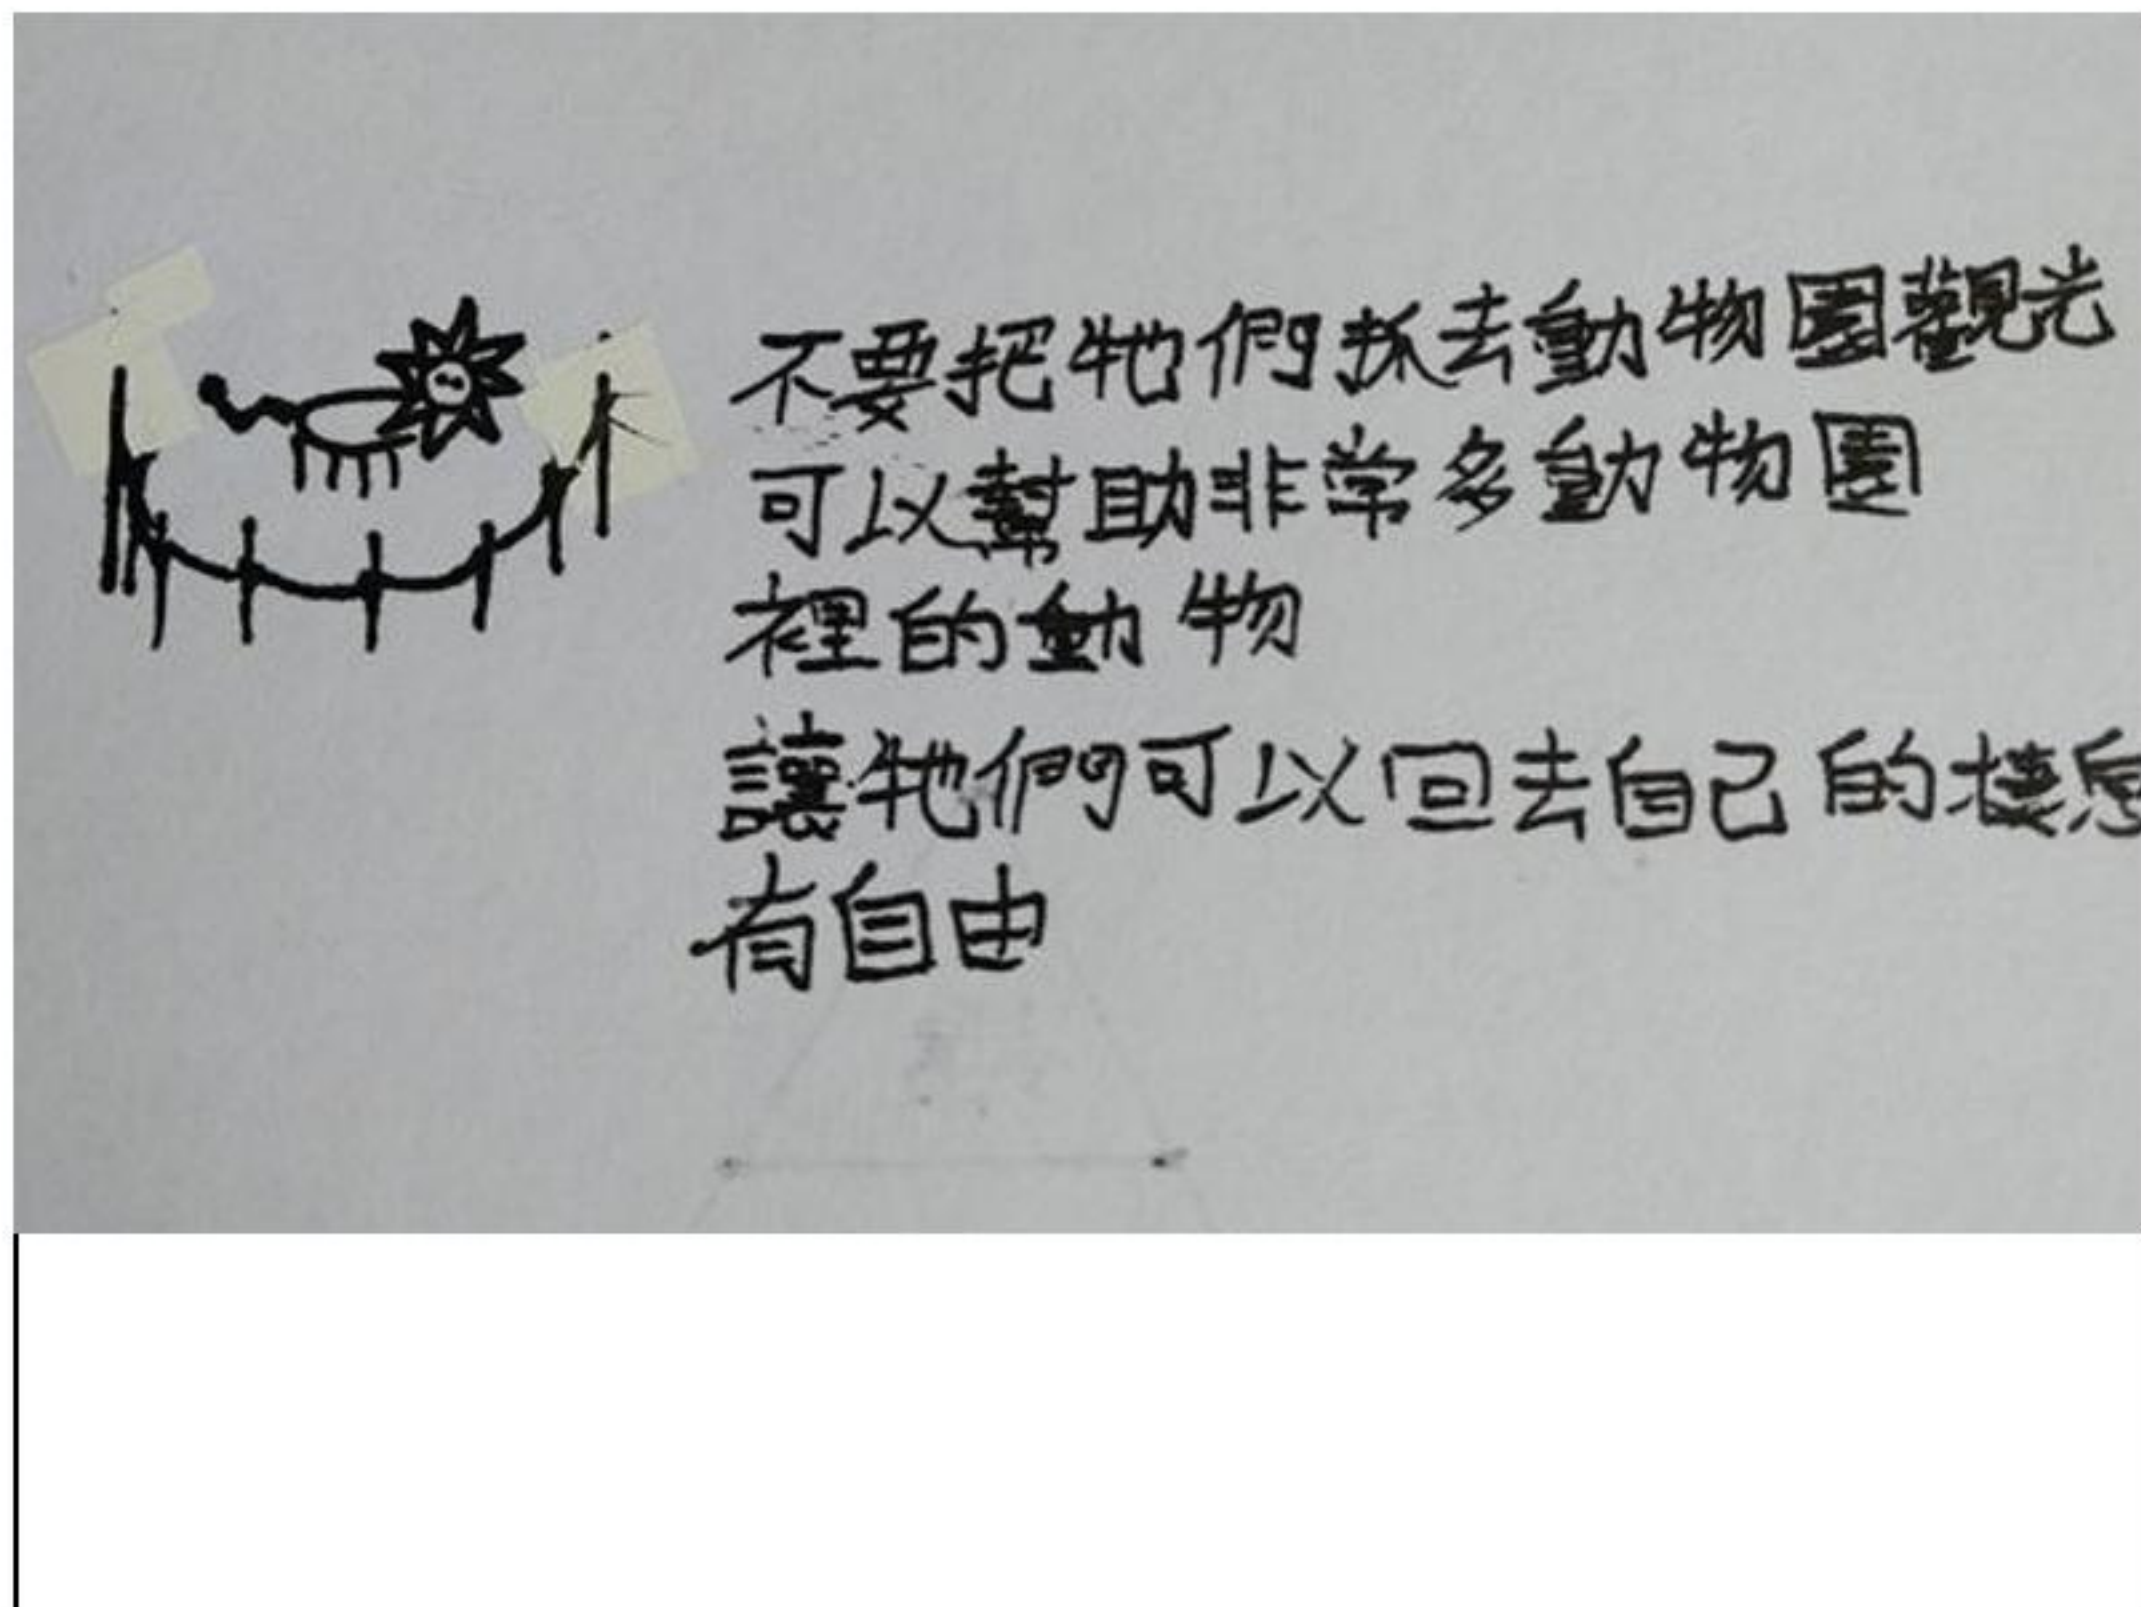 不要把牠們抓去動物園觀光
可以幫助非常多動物園
裡的動物
讓牠們可以回去自己的棲息
有自由